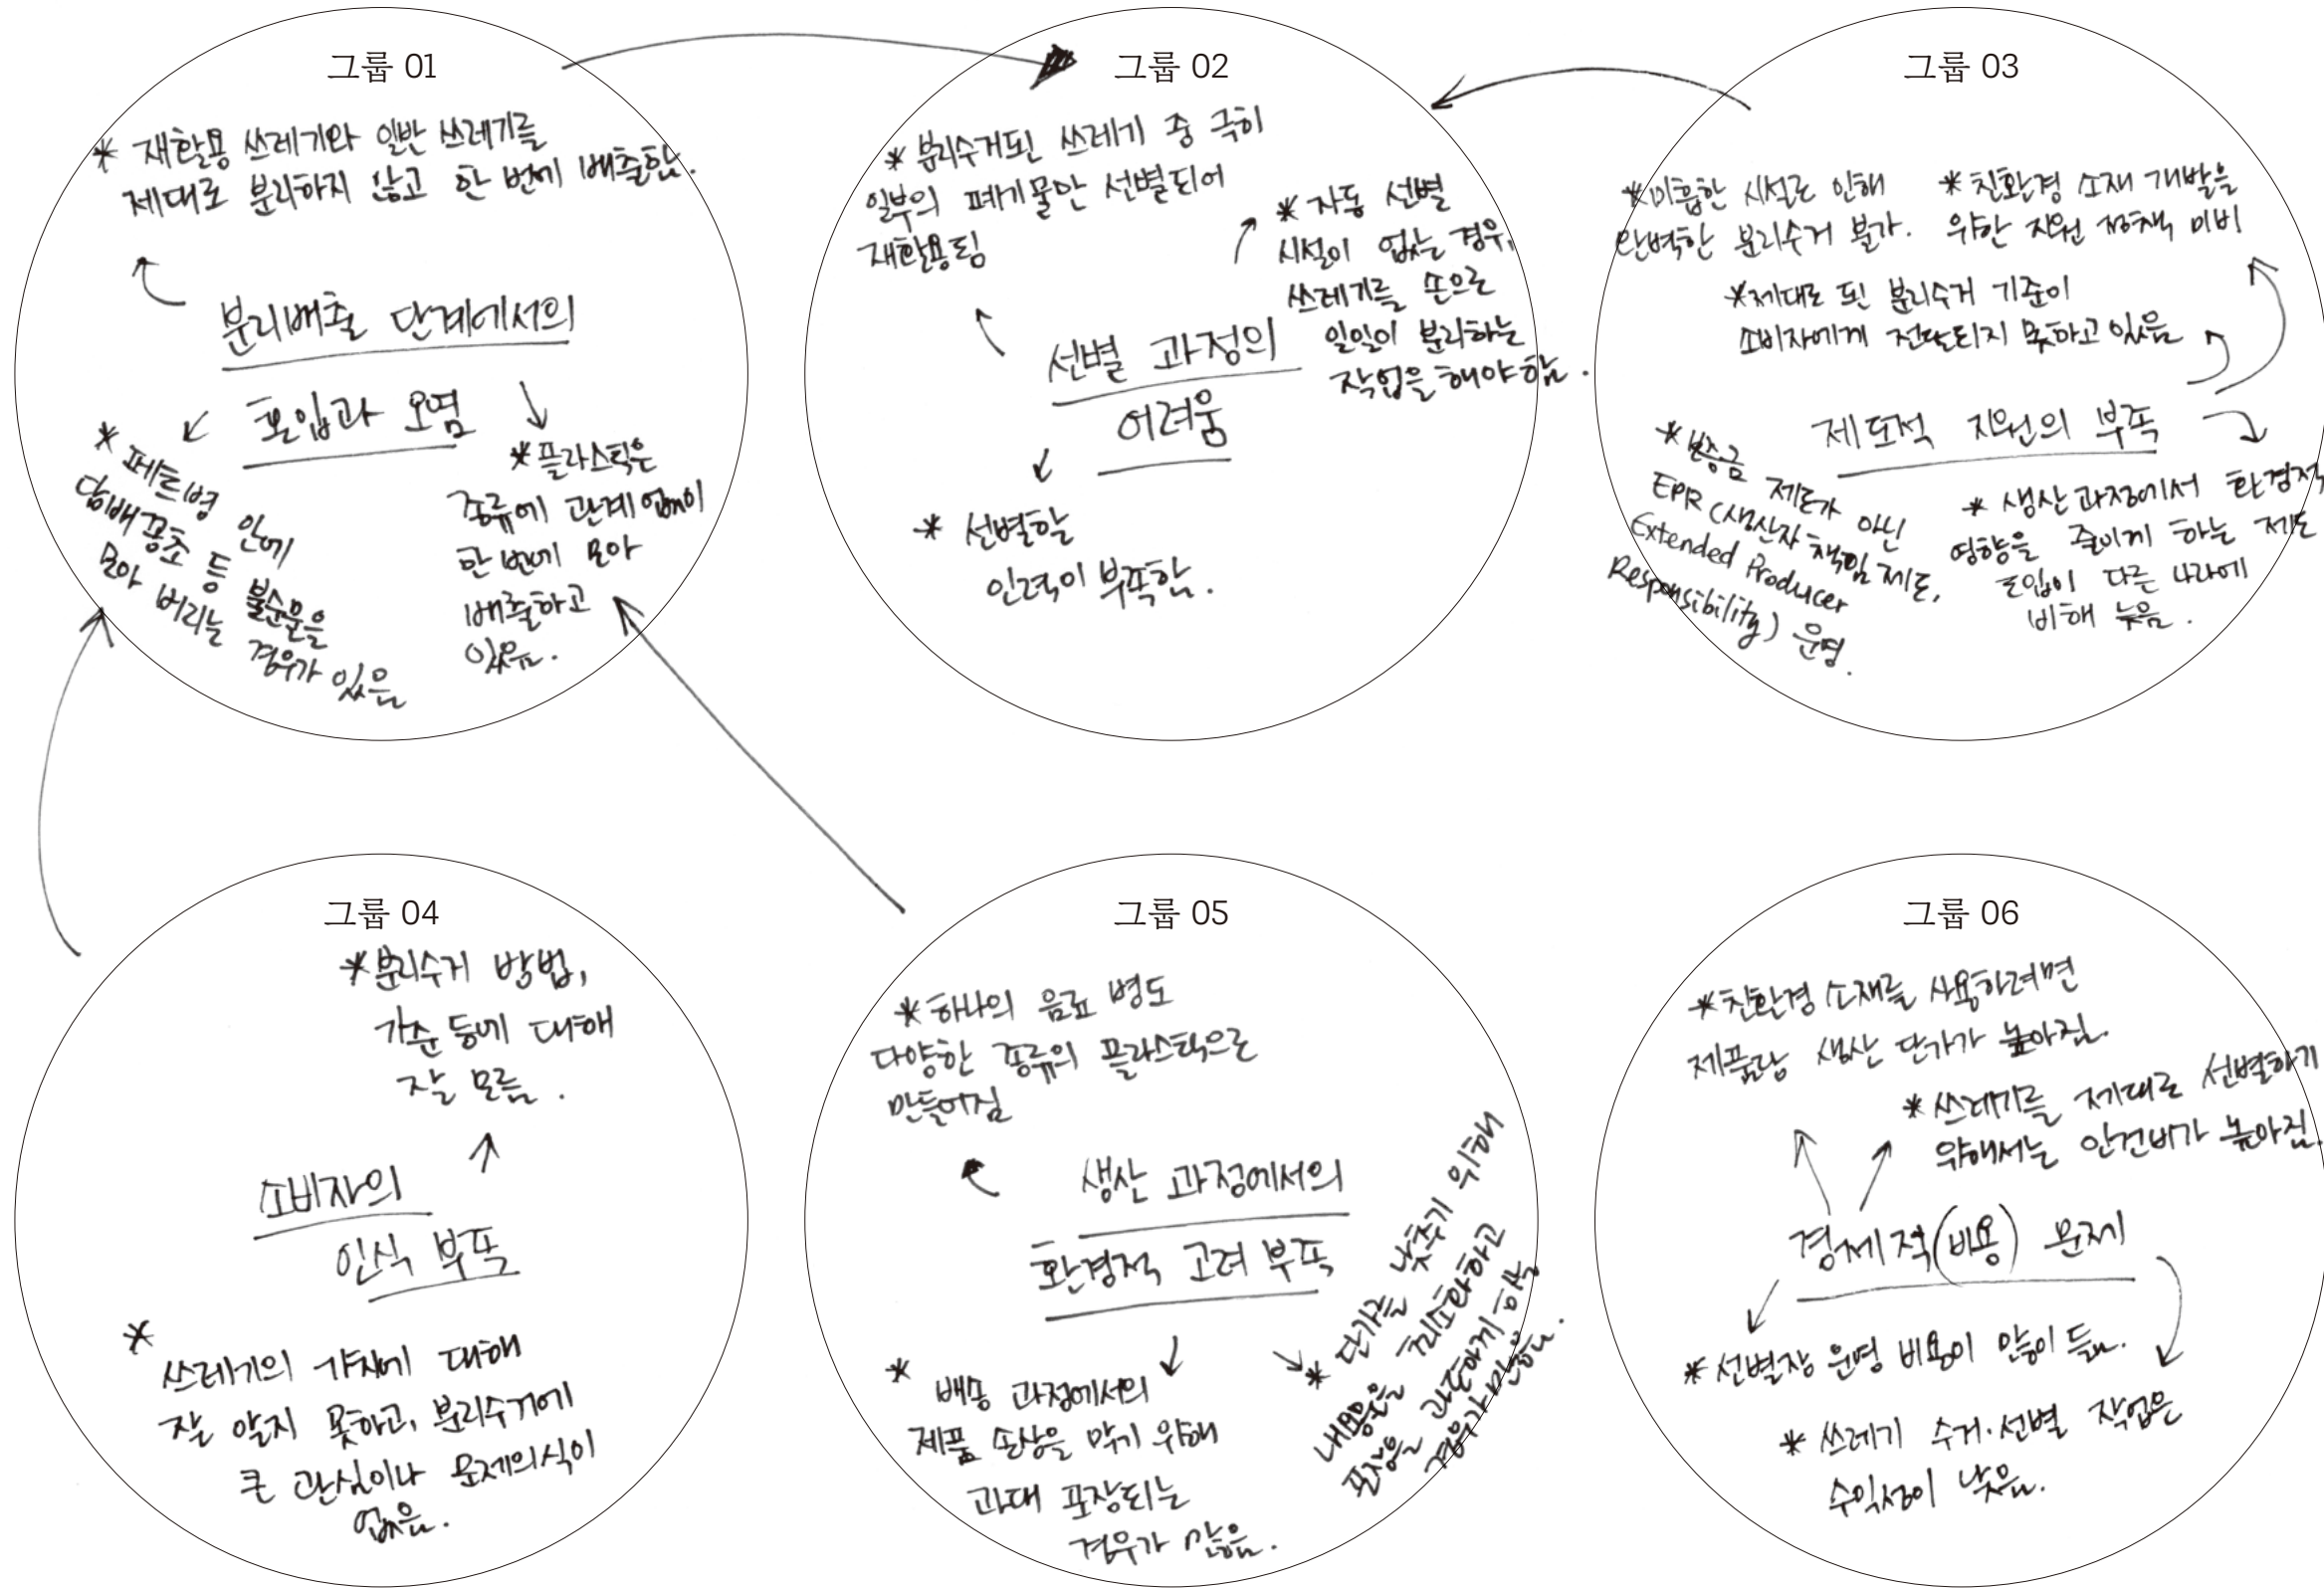 그룹 01
* 재활용 쓰레기와 일반 쓰레기를
제대로 분리하지 않고 한 번에 배출함.
분리배출 단계에서의
혼입과 오염
* 페트병 안에
담배꽁초 등 불순물을
모아 버리는 경우가 있음
* 플라스틱은
종류에 관계 없이
한 번에 모아
배출하고
있음.
그룹 02
* 분리수거된 쓰레기 중 극히
일부의 폐기물만 선별되어
재활용됨
* 자동 선별
시설이 없는 경우,
쓰레기를 손으로
일일이 분리하는
작업을 해야 함.
선별 과정의
어려움
* 선별할
인력이 부족함.
그룹 03
* 미흡한 시설로 인해
완벽한 분리수거 불가.
* 친환경 소재 개발을
위한 지원 정책 미비
* 제대로 된 분리수거 기준이
소비자에게 전달되지 못하고 있음
제도적 지원의 부족
* 보증금 제도가 아닌
EPR (생산자 책임 제도,
Extended Producer
Responsibility) 운영.
* 생산 과정에서 환경적
영향을 줄이게 하는 제도
도입이 다른 나라에
비해 늦음.
그룹 04
* 분리수거 방법,
기준 등에 대해
잘 모름.
소비자의
인식 부족
*
쓰레기의 가치에 대해
잘 알지 못하고, 분리수거에
큰 관심이나 문제의식이
없음.
그룹 05
* 하나의 음료 병도
다양한 종류의 플라스틱으로
만들어짐
생산 과정에서의
환경적 고려 부족
* 배송 과정에서의
제품 손상을 막기 위해
과대 포장되는
경우가 많음.
* 단가를 낮추기 위해
내용물은 최소화하고
포장을 과도하게 하는
경우가 많음.
그룹 06
* 친환경 소재를 사용하려면
제품당 생산 단가가 높아짐.
* 쓰레기를 제대로 선별하기
위해서는 인건비가 높아짐.
경제적(비용) 문제
* 선별장 운영 비용이 많이 듦.
* 쓰레기 수거·선별 작업은
수익성이 낮음.